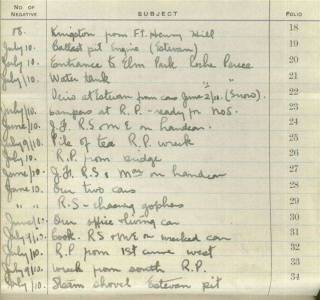 NO. OF NEGATIVE SUBJECT FOLIO
18. Kingston from Ft. Henry Hill 18
July/10. Ballast pit Engine (Estevan) 19
July/10. Entrance to Elm Park 20
July/10. Water tank " 21
View at Estevan from cars June 2/10. (Snow). 22
July/10. campers at R.P. - ready for no 5. 23
June/10. J.H. R.S & M E on handcar. 24
July 9/10. Pile of tea R.P. wreck 25
July 10. R.P. from bridge 26
June/10. J.H. R.S. & Mrs on handcar 27
June 10. Our two cars 28
" " R.S - chasing gophers 29
June/10. Our office & living car 30
July 9/10. Cook. RS & ME on wrecked car 31
July/10. R.P. from 1st curve west 32
July 9/10 wreck from south R.P. 33
July/10. Steam shovel Estevan pit 34